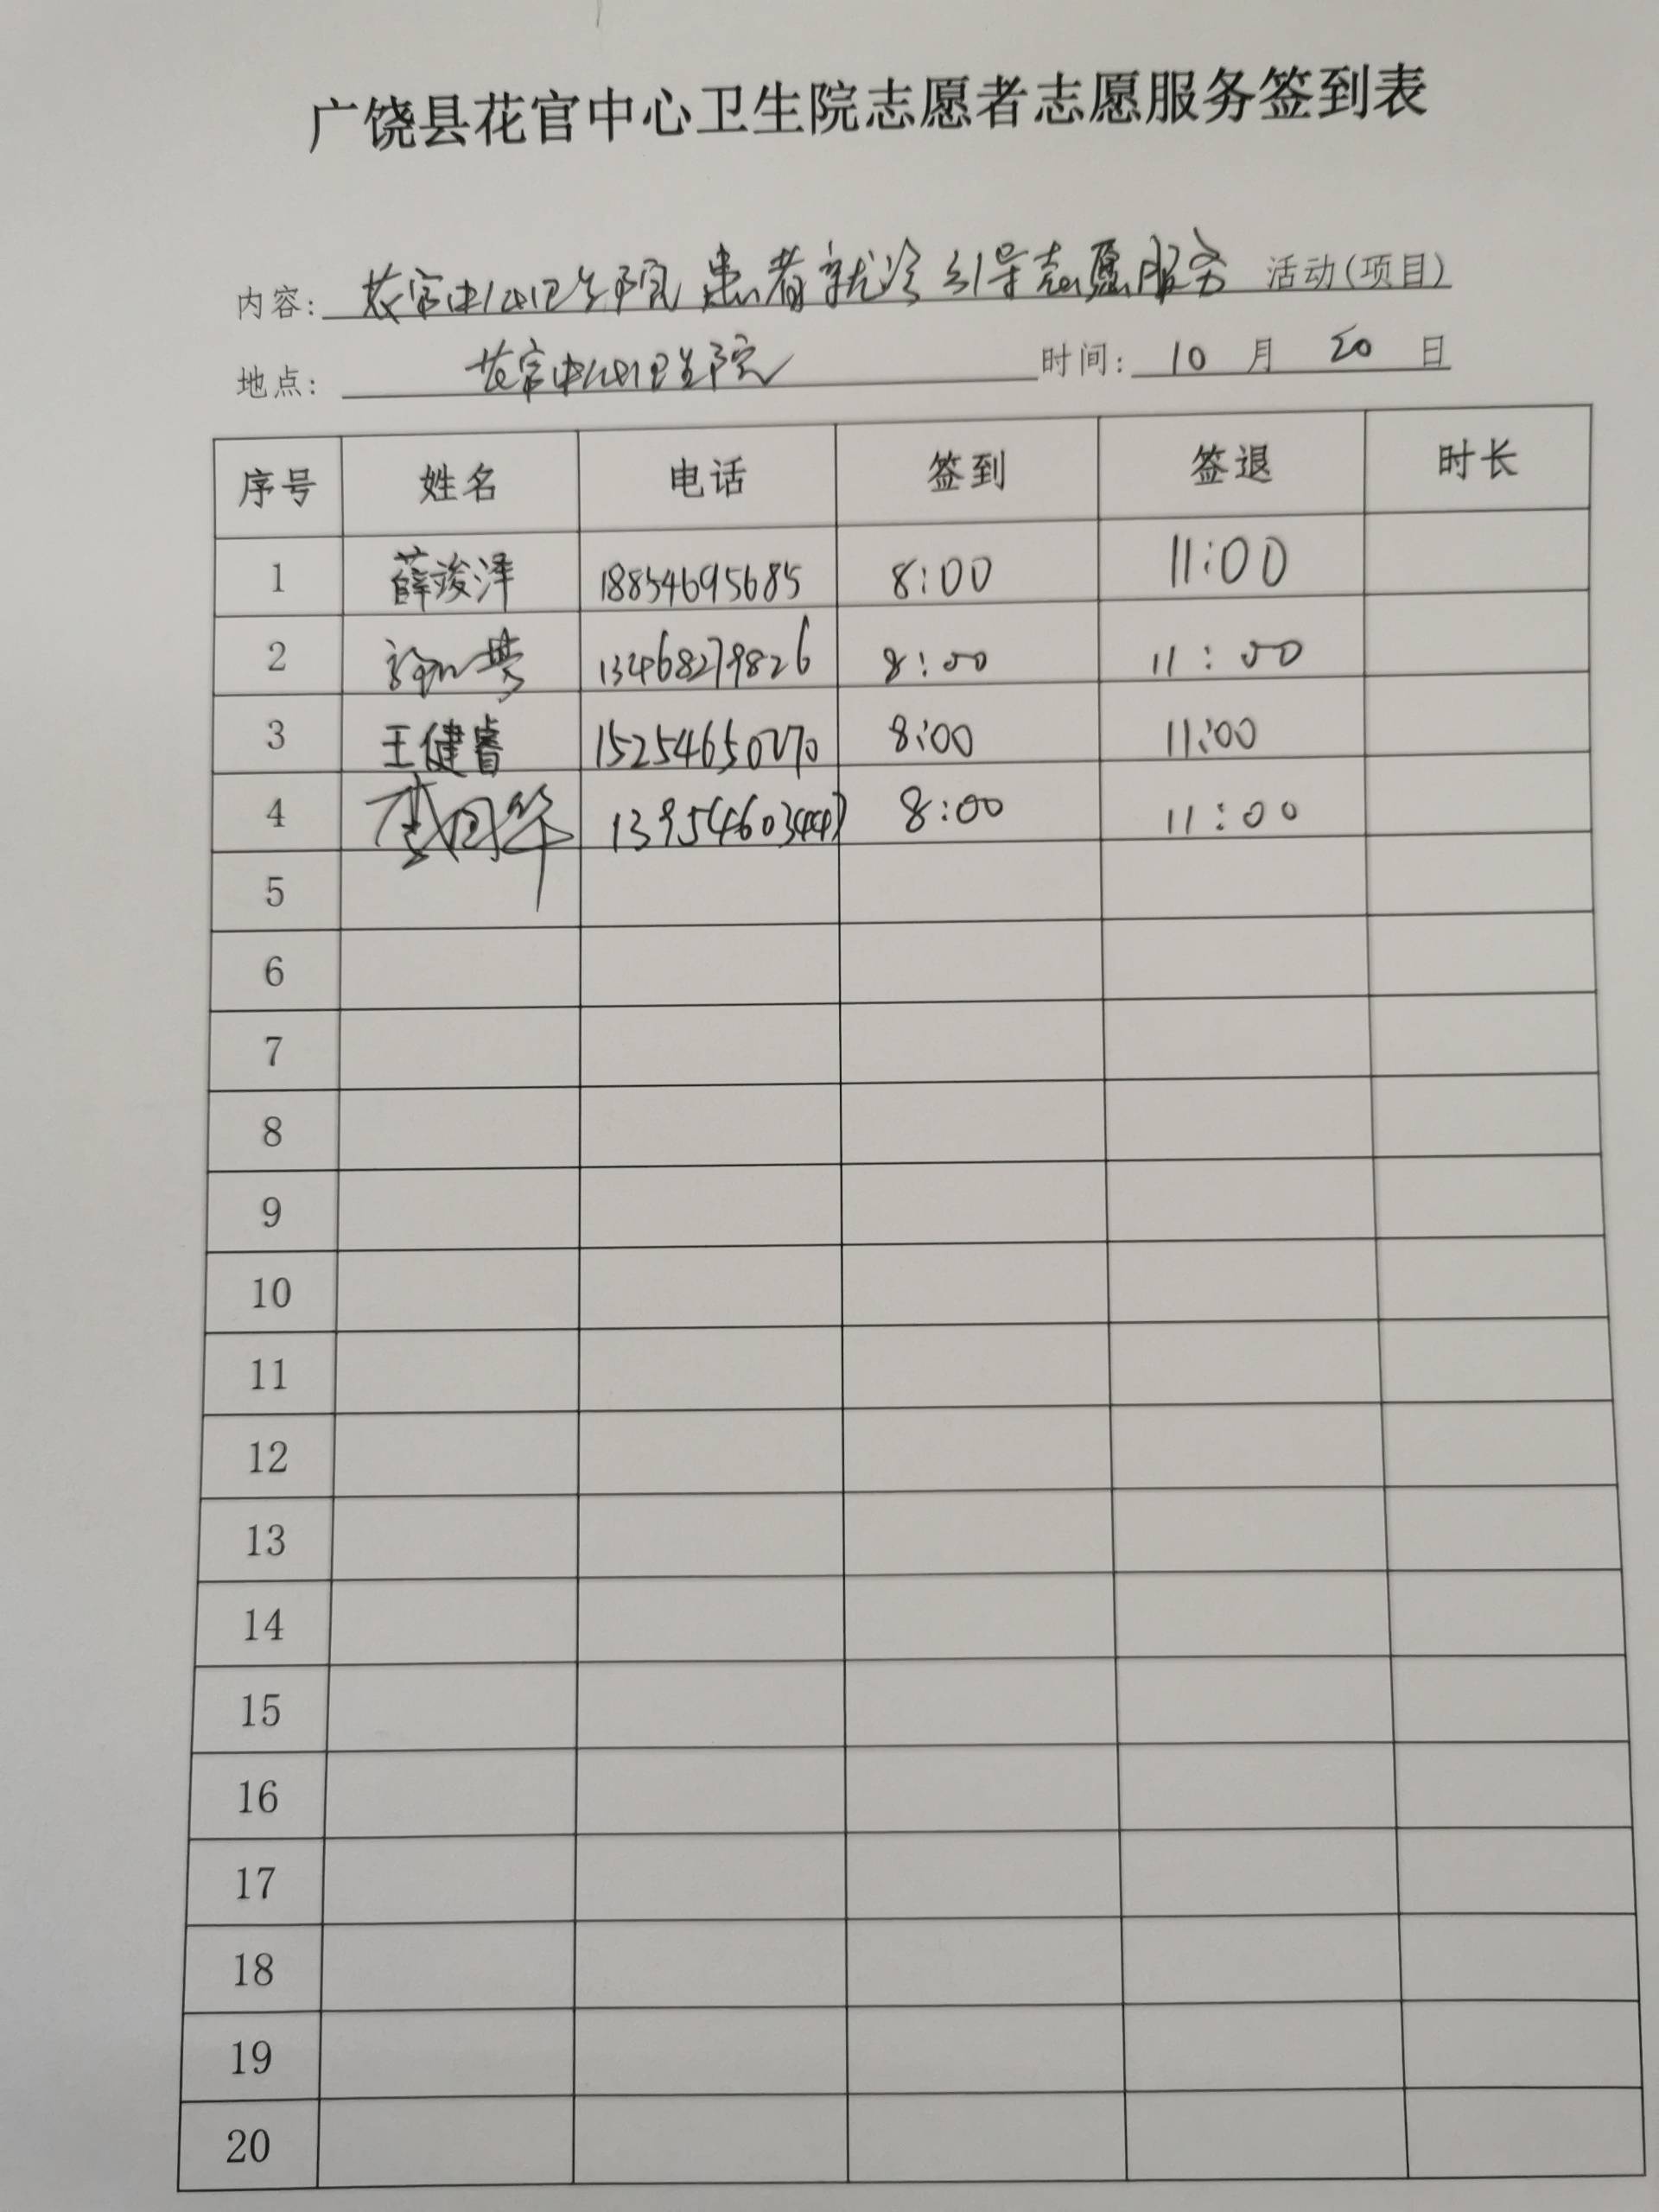 广饶县花官中心卫生院志愿者志愿服务签到表
内容: 花官中心卫生院患者就诊引导志愿服务 活动(项目)
地点: 花官中心卫生院 时间: 10 月 20 日
序号 姓名 电话 签到 签退 时长
1 薛竣泽 18854695685 8:00 11:00
2 13468279826 8:00 11:00
3 王健睿 15254650270 8:00 11:00
4 8:00 11:00
5
6
7
8
9
10
11
12
13
14
15
16
17
18
19
20